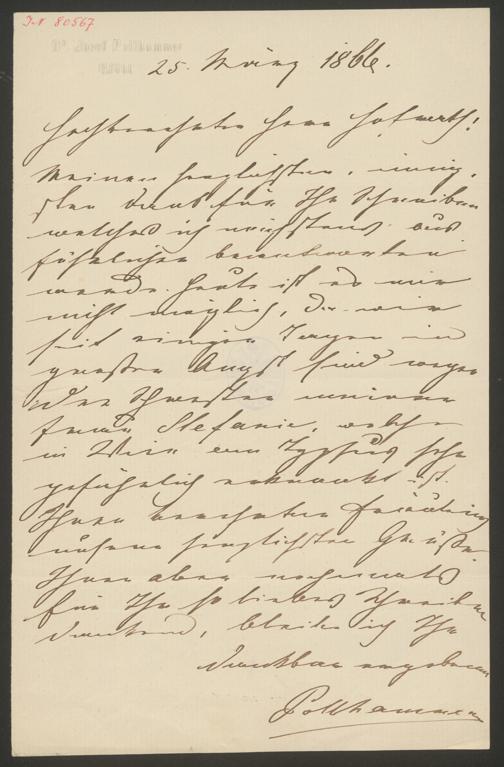 I.N 80567
Dr. Josef Pollhammer
25. März 1866.
Hochverehrter Herr Hofrath!
Meinen herzlichsten, innig-
sten Dank für Ihr Schreiben
welches ich nächstens aus
führlicher beantworten
werde. Heute ist es mir
nicht möglich, da wir
seit einigen Tagen in
großer Angst sind wegen
der Schwester meiner
Frau Stefanie, welche
in Wien am Typhus sehr
gefährlich erkrankt ist.
Ihrer verehrten Fräulein
unsere herzlichsten Grüße.
Ihnen aber nochmals
für Ihr so liebes Schreiben
dankend, bleibe ich Ihr
dankbar ergebener
Pollhammer